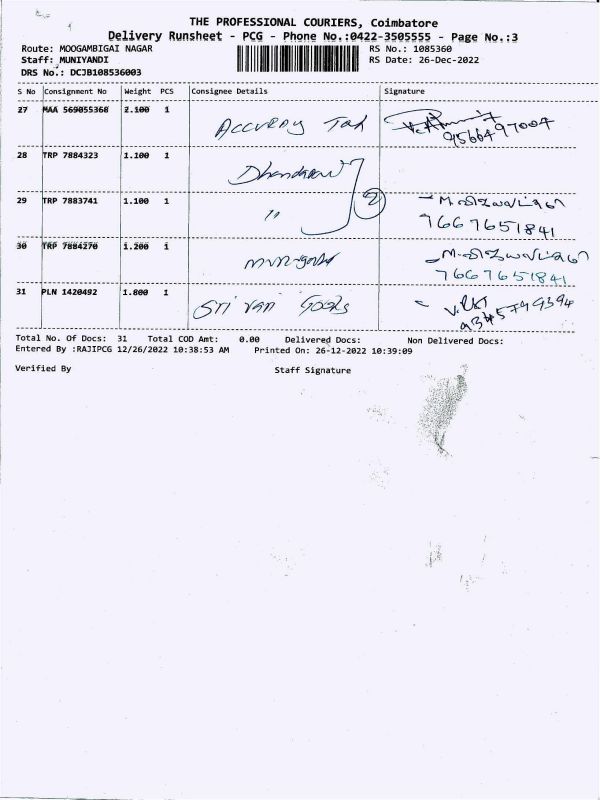 THE PROFESSIONAL COURIERS, Coimbatore
Delivery Runsheet - PCG - Phone No.:0422-3505555 - Page No.:3
Route: MOOGAMBIGAI NAGAR RS No.: 1085360
Staff: MUNIYANDI RS Date: 26-Dec-2022
DRS No.: DCJB108536003
S No Consignment No Weight PCS Consignee Details Signature
27 MAA 569055368 2.100 1
9566497004
28 TRP 7884323 1.100 1
29 TRP 7883741 1.100 1 " 2
7667651841
30 TRP 7884270 1.200 1
7667651841
31 PLN 1420492 1.800 1 Sri van
Total No. Of Docs: 31 Total COD Amt: 0.00 Delivered Docs: Non Delivered Docs:
Entered By :RAJIPCG 12/26/2022 10:38:53 AM Printed On: 26-12-2022 10:39:09
Verified By Staff Signature